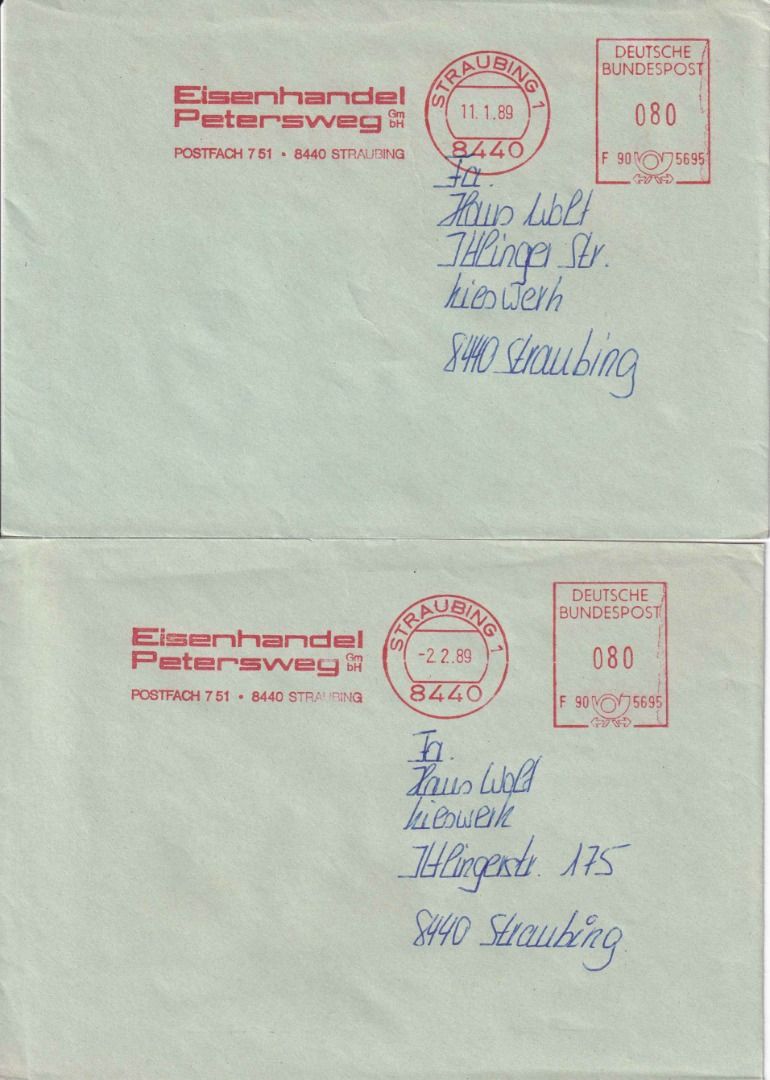 Eisenhandel
Petersweg GmbH
POSTFACH 7 51 • 8440 STRAUBING
STRAUBING 1
11.1.89
8440
DEUTSCHE
BUNDESPOST
080
F 90 5695
Fa.
Hans Wolf
Ittlinger Str.
Kieswerk
8440 Straubing
Eisenhandel
Petersweg GmbH
POSTFACH 7 51 • 8440 STRAUBING
STRAUBING 1
-2.2.89
8440
DEUTSCHE
BUNDESPOST
080
F 90 5695
Fa.
Hans Wolf
Kieswerk
Ittlingerstr. 175
8440 Straubing